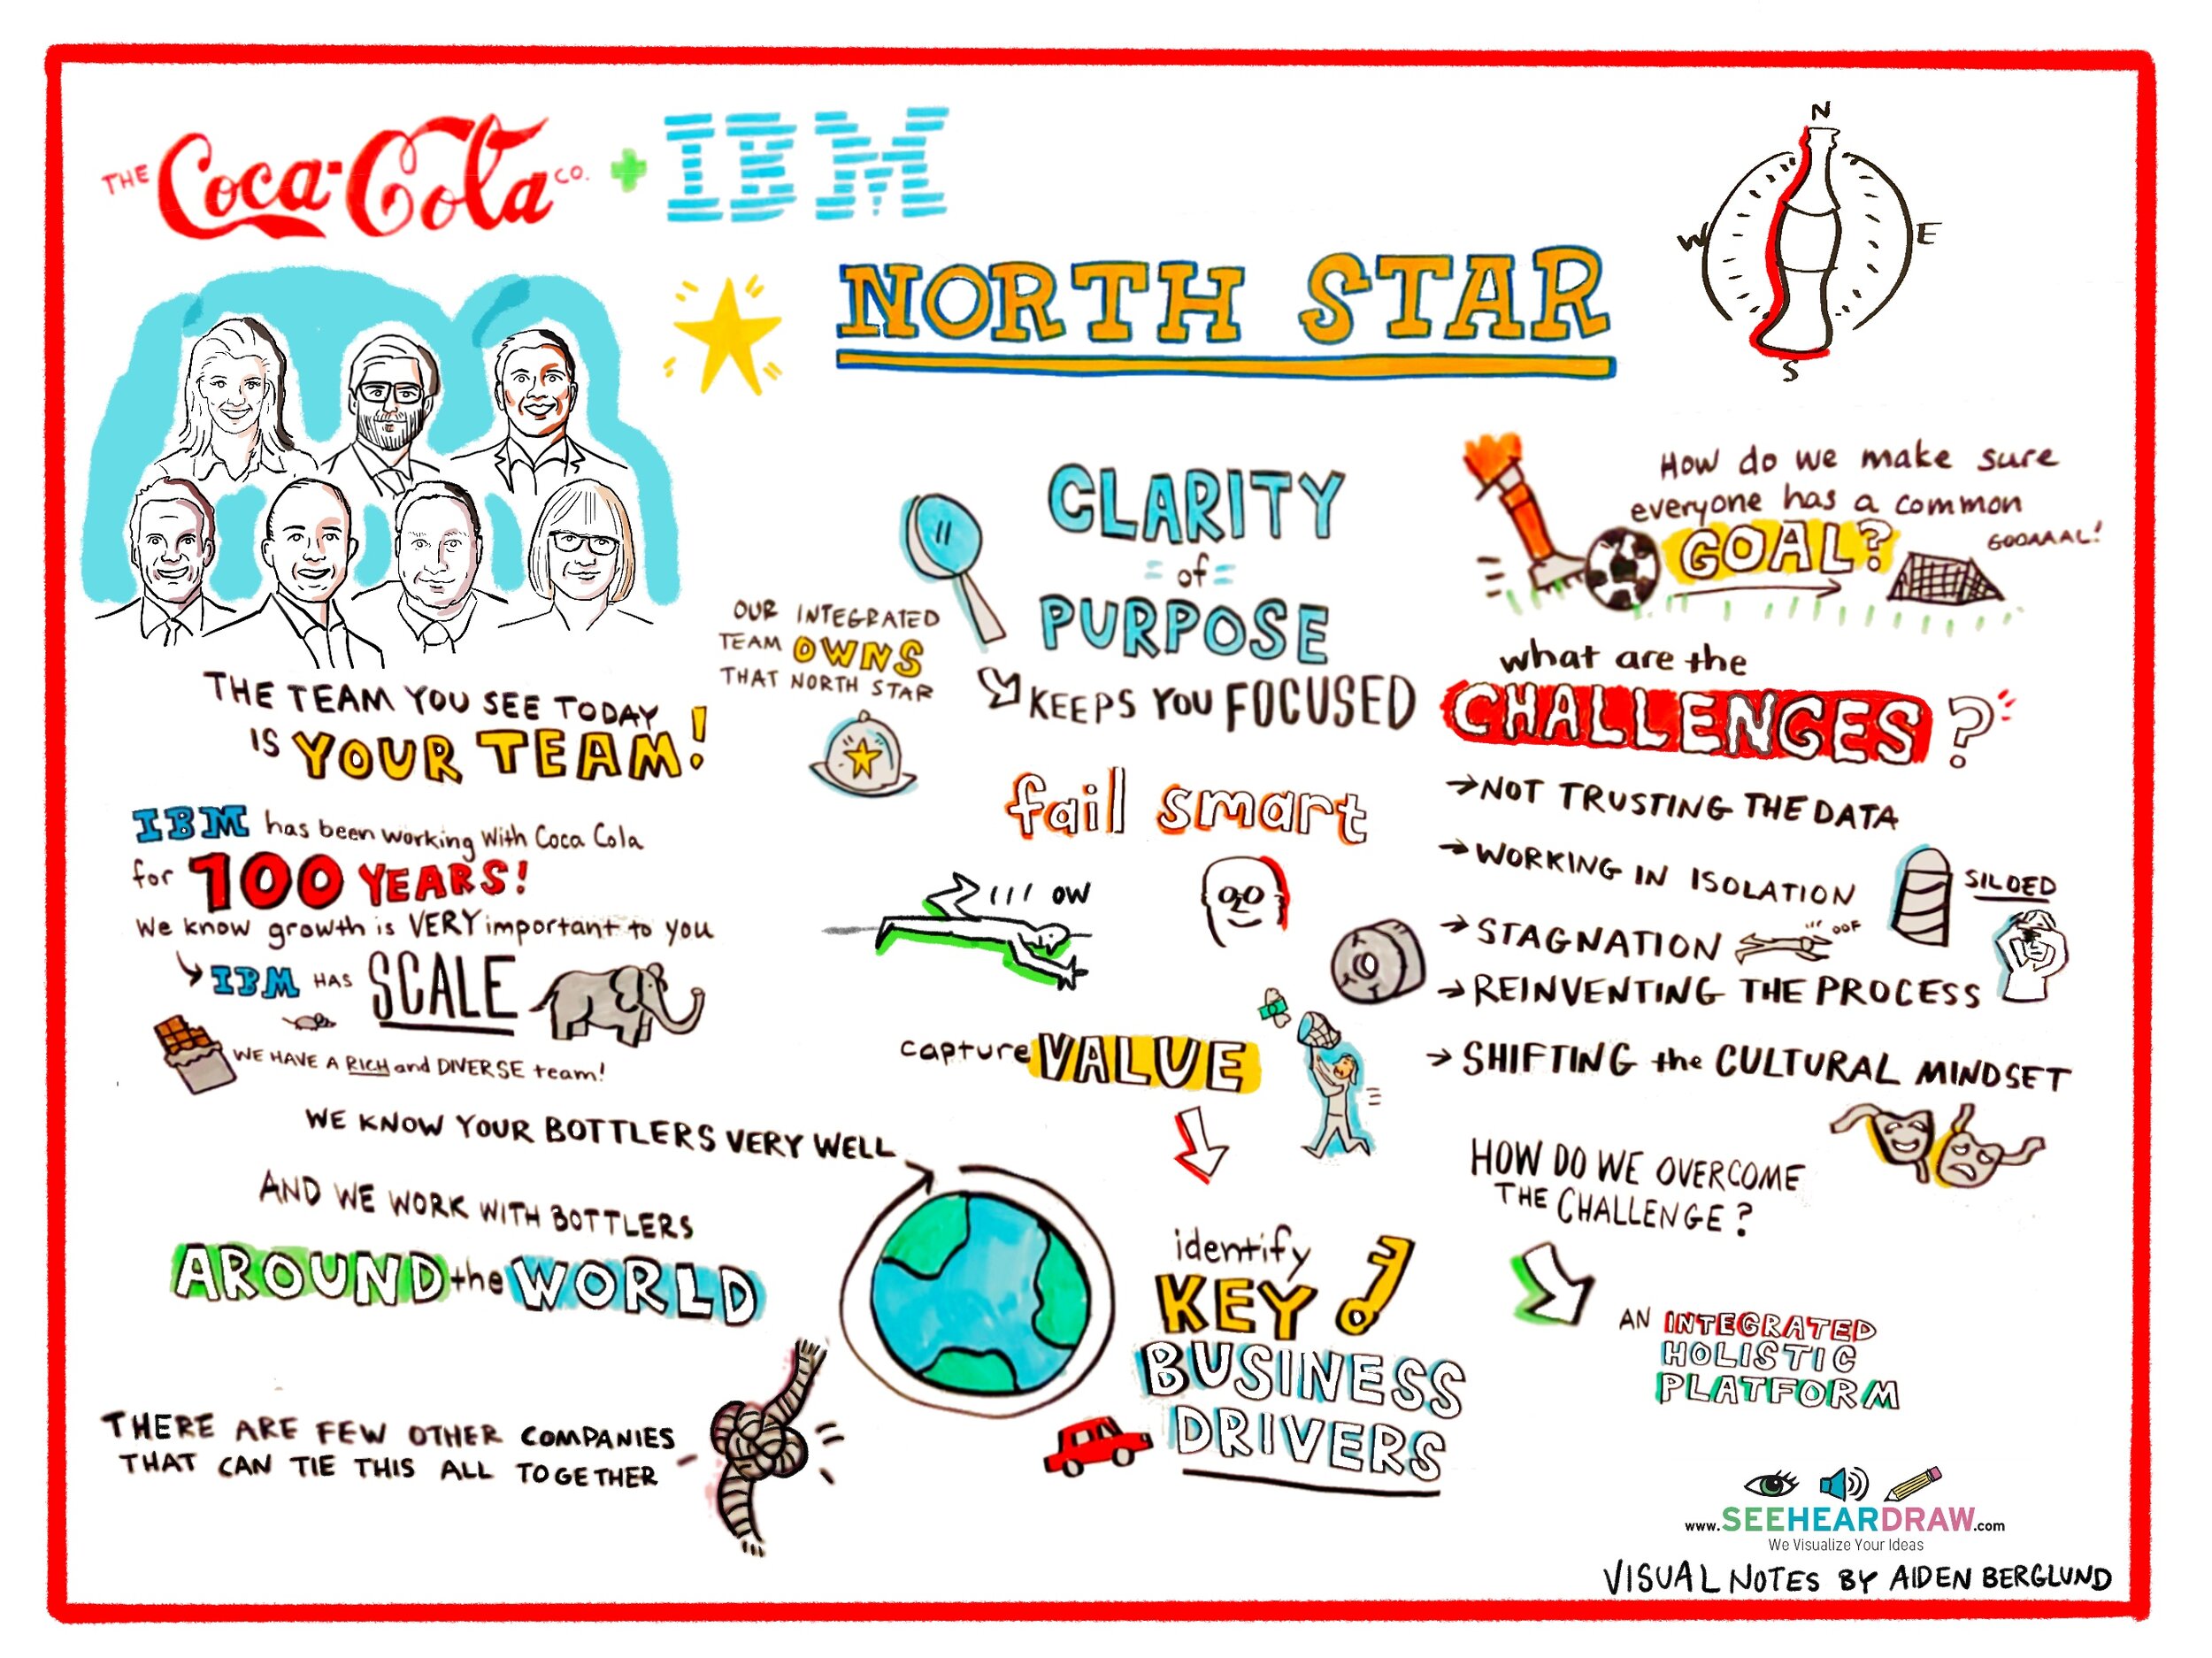 THE Coca-Cola CO. + IBM
NORTH STAR
N
W
E
S
THE TEAM YOU SEE TODAY
IS YOUR TEAM!
IBM has been working with Coca Cola
for 100 YEARS!
We know growth is VERY important to you
IBM HAS SCALE
WE HAVE A RICH and DIVERSE team!
WE KNOW YOUR BOTTLERS VERY WELL
AND WE WORK WITH BOTTLERS
AROUND the WORLD
THERE ARE FEW OTHER COMPANIES
THAT CAN TIE THIS ALL TOGETHER
OUR INTEGRATED
TEAM OWNS
THAT NORTH STAR
CLARITY
of
PURPOSE
KEEPS YOU FOCUSED
fail smart
OW
capture VALUE
identify
KEY
BUSINESS
DRIVERS
How do we make sure
everyone has a common
GOAL?
GOOAAAL!
what are the
CHALLENGES?
→NOT TRUSTING THE DATA
→WORKING IN ISOLATION
SILOED
→STAGNATION
OOF
→REINVENTING THE PROCESS
→SHIFTING the CULTURAL MINDSET
HOW DO WE OVERCOME
THE CHALLENGE?
AN INTEGRATED
HOLISTIC
PLATFORM
www.SEEHEARDRAW.com
We Visualize Your Ideas
VISUAL NOTES BY AIDEN BERGLUND